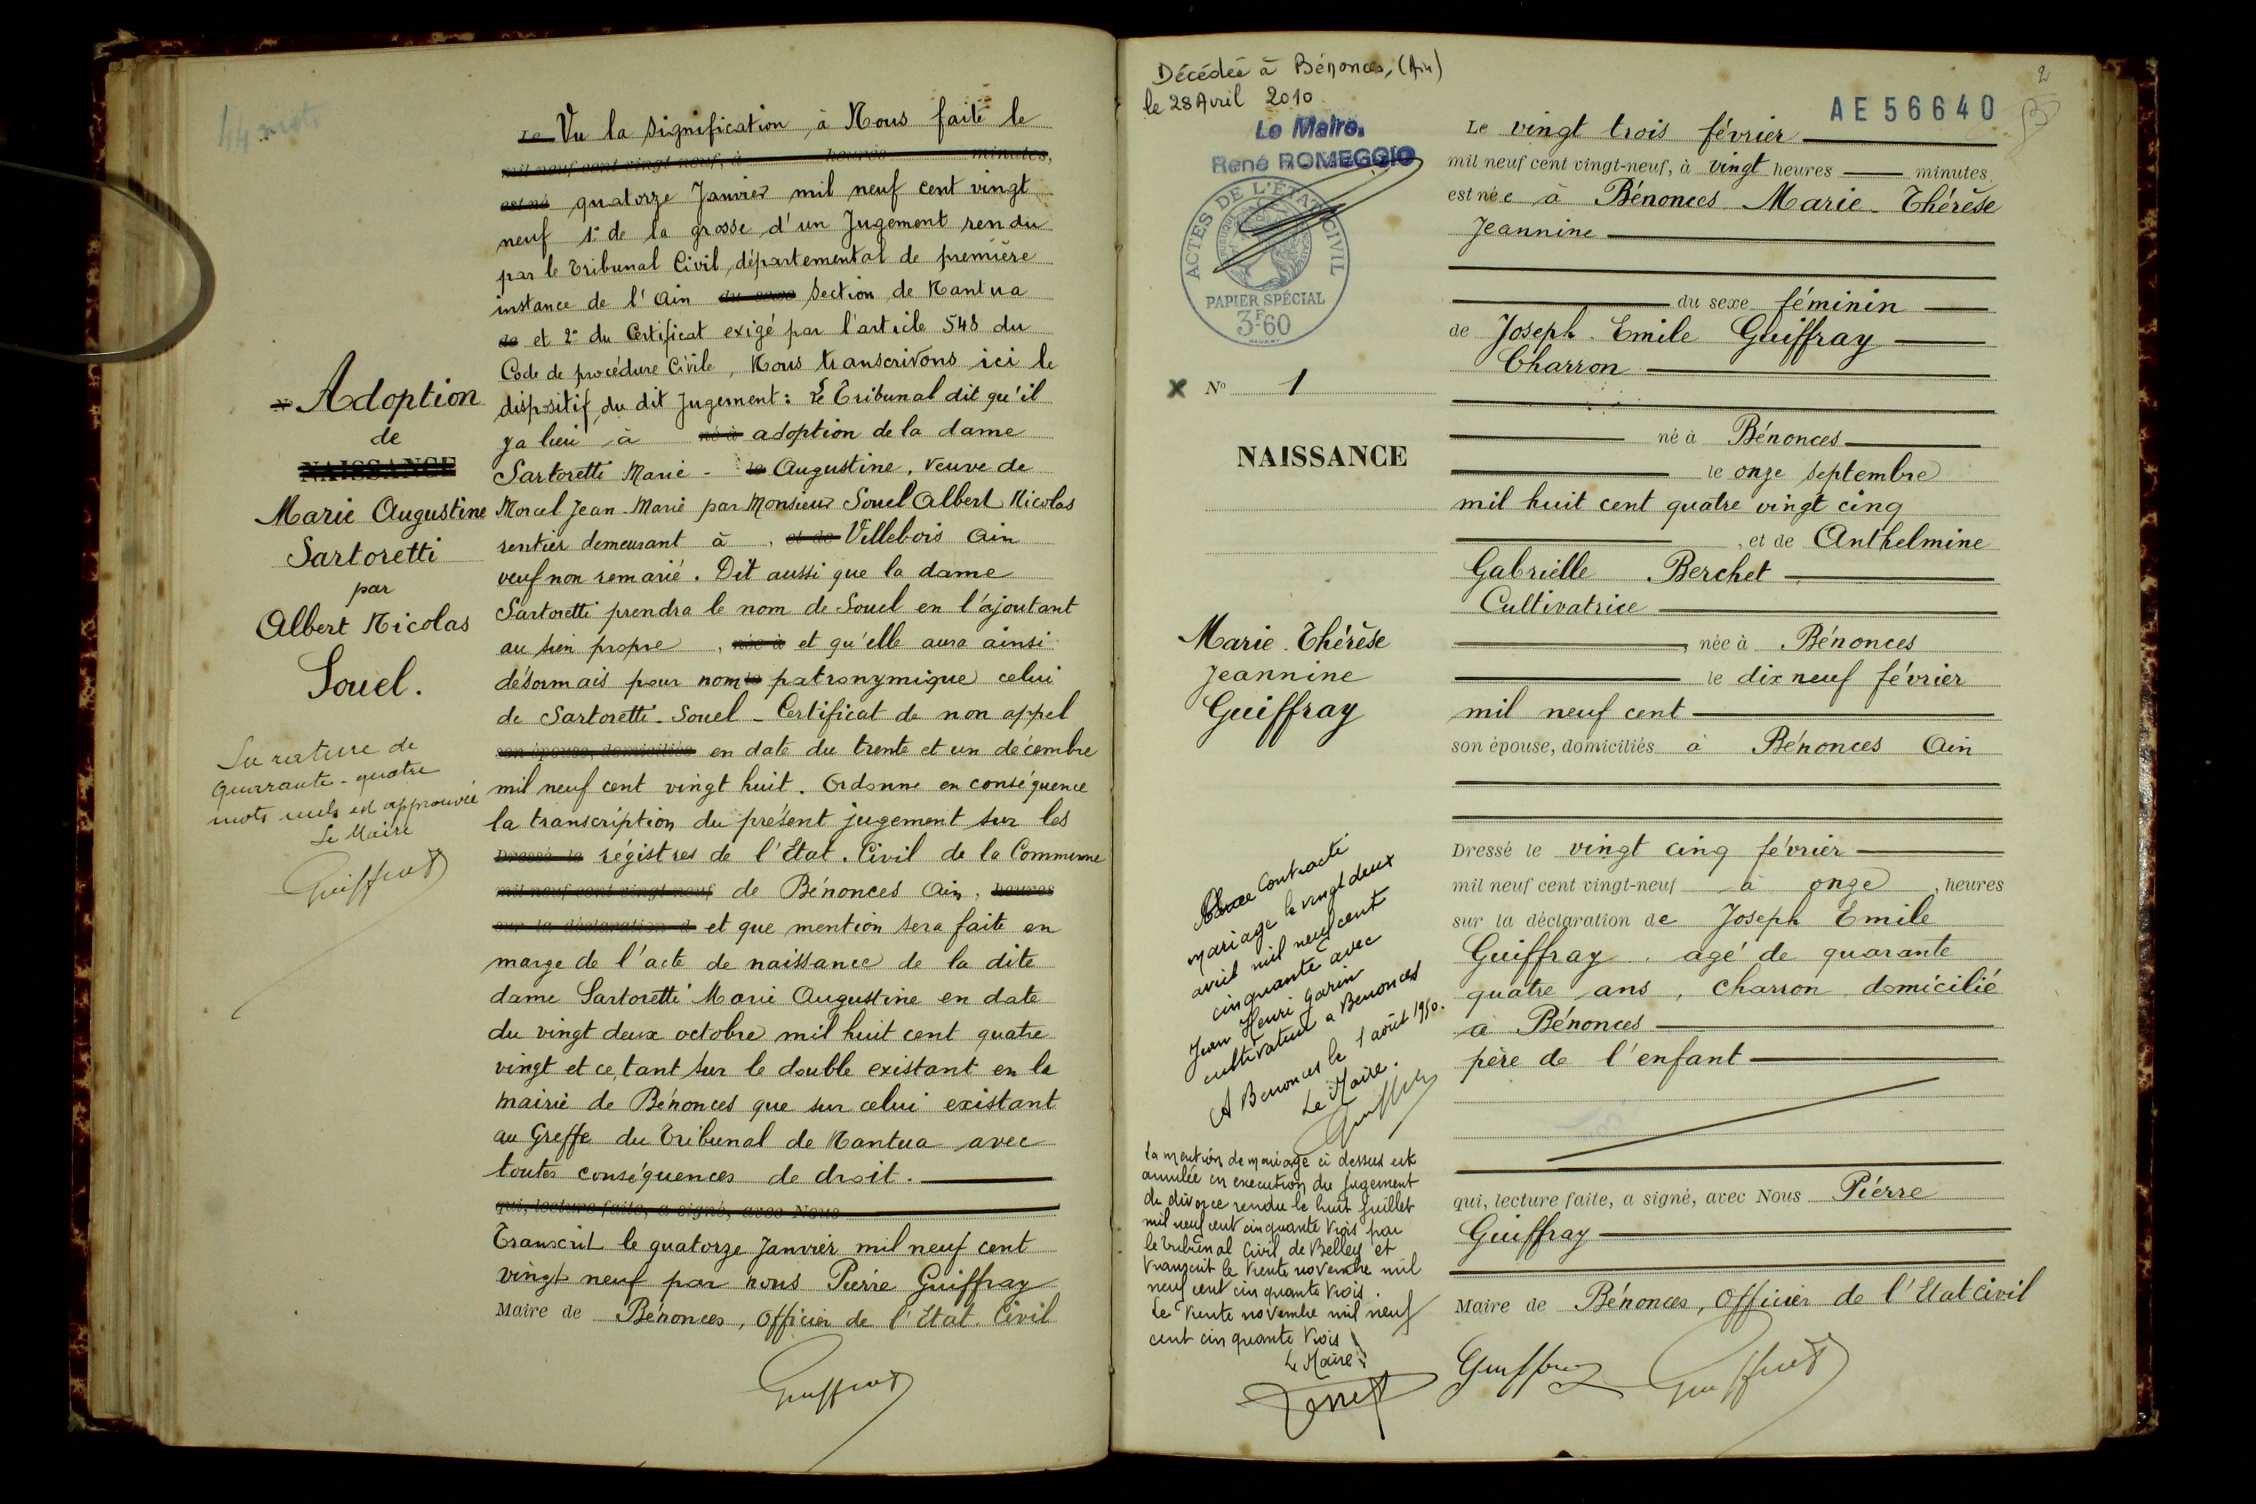 44 mots
Le Vu la signification, à Nous faite le
mil neuf cent vingt-neuf, à heures minutes,
est né quatorze Janvier mil neuf cent vingt
neuf 1° de la grosse d'un Jugement rendu
par le Tribunal Civil, départemental de première
instance de l'Ain du sexe section de Nantua
de et 2° du Certificat exigé par l'article 548 du
Code de procédure Civile, Nous transcrivons ici le
dispositif, du dit Jugement : Le Tribunal dit qu'il
ya lieu à né à adoption de la dame
Sartoretti Marie - le Augustine, veuve de
Morcel Jean-Marie par Monsieur Souel Albert Nicolas
rentier demeurant à , et de Villebois Ain
veuf non remarié. Dit aussi que la dame
Sartoretti prendra le nom de Souel en l'ajoutant
au sien propre , née à et qu'elle aura ainsi
désormais pour nom le patronymique celui
de Sartoretti-Souel - Certificat de non appel
son épouse, domiciliés en date du trente et un décembre
mil neuf cent vingt huit. Ordonne en conséquence
la transcription du présent jugement sur les
Dressé le régistres de l'Etat. Civil de la Commune
mil neuf cent vingt-neuf de Bénonces Ain, heures
sur la déclaration d et que mention sera faite en
marge de l'acte de naissance de la dite
dame Sartoretti Marie Augustine en date
du vingt deux octobre mil huit cent quatre
vingt et ce, tant sur le double existant en la
mairie de Bénonces que sur celui existant
au Greffe du Tribunal de Nantua avec
toutes conséquences de droit.
qui, lecture faite, a signé, avec Nous
Transcrit le quatorze Janvier mil neuf cent
vingt neuf par nous Pierre Guiffray
Maire de Bénonces, Officier de l'Etat Civil
Guiffray
N° Adoption
de
NAISSANCE
Marie Augustine
Sartoretti
par
Albert Nicolas
Souel.
La rature de
quarante-quatre
mots nuls est approuvée
Le Maire
Guiffray
Décédée à Bénonces, (Ain)
le 28 Avril 2010
Le Maire,
René ROMEGGIO
ACTES DE L'ÉTAT CIVIL
PAPIER SPÉCIAL
3F60
x N° 1
NAISSANCE
Marie Thérèse
Jeannine
Guiffray
contracté
mariage le vingt deux
avril mil neuf cent
cinquante avec
Jean Henri Garin
cultivateur a Benonces
A Benonces le 1 août 1950.
Le Maire.
Guiffray
La mention de mariage ci dessus est
annulée en execution du jugement
de divorce rendu le huit Juillet
mil neuf cent cinquante trois par
le tribunal Civil de Belley et
transcrit le trente novembre mil
neuf cent cinquante trois.
Le trente novembre mil neuf
cent cinquante trois
Le Maire :
2
AE 56640
Le vingt trois février
mil neuf cent vingt-neuf, à vingt heures minutes
est née à Bénonces Marie-Thérèse
Jeannine
du sexe féminin
de Joseph Emile Guiffray
Charron
né à Bénonces
le onze septembre
mil huit cent quatre vingt cinq
, et de Anthelmine
Gabrielle Berchet
Cultivatrice
, née à Bénonces
le dix neuf février
mil neuf cent
son épouse, domiciliés à Bénonces Ain
Dressé le vingt cinq février
mil neuf cent vingt-neuf à onze , heures
sur la déclaration de Joseph Emile
Guiffray , agé de quarante
quatre ans , charron domicilié
à Bénonces
père de l'enfant
qui, lecture faite, a signé, avec Nous Pierre
Guiffray
Maire de Bénonces, Officier de l'Etat Civil
Guiffray Guiffray